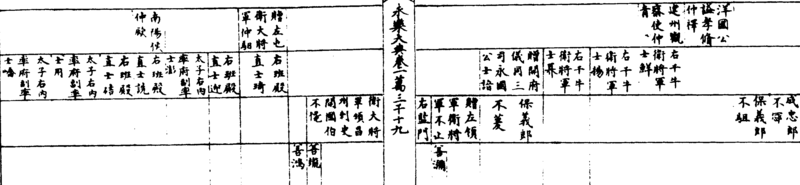 洋國公
謚孝脩
仲㯋
建州觀
察使仲
青
右千牛
衛將軍
士鮮
右千牛
衛將軍
士錫
右千牛
衛將軍
士㬎
贈開府
儀同三
司永國
公士㒓
成忠郎
不㝛
保義郎
不䎐
保義郎
不菱
贈左領
軍衛將
軍不止
右監門
善瀰
永樂大典卷一萬二千十九
贈左屯
衛大將
軍仲䎐
南陽侯
仲歐
右班殿
直士琦
右班殿
直士迎
太子右內
率府副率
士澎
右班殿
直士說
右班殿
直士碏
太子右內
率府副率
士用
太子右內
率府副率
士嶹
衛大將
軍順昌
州刺史
開國伯
不㦤
善瓏
善鴻